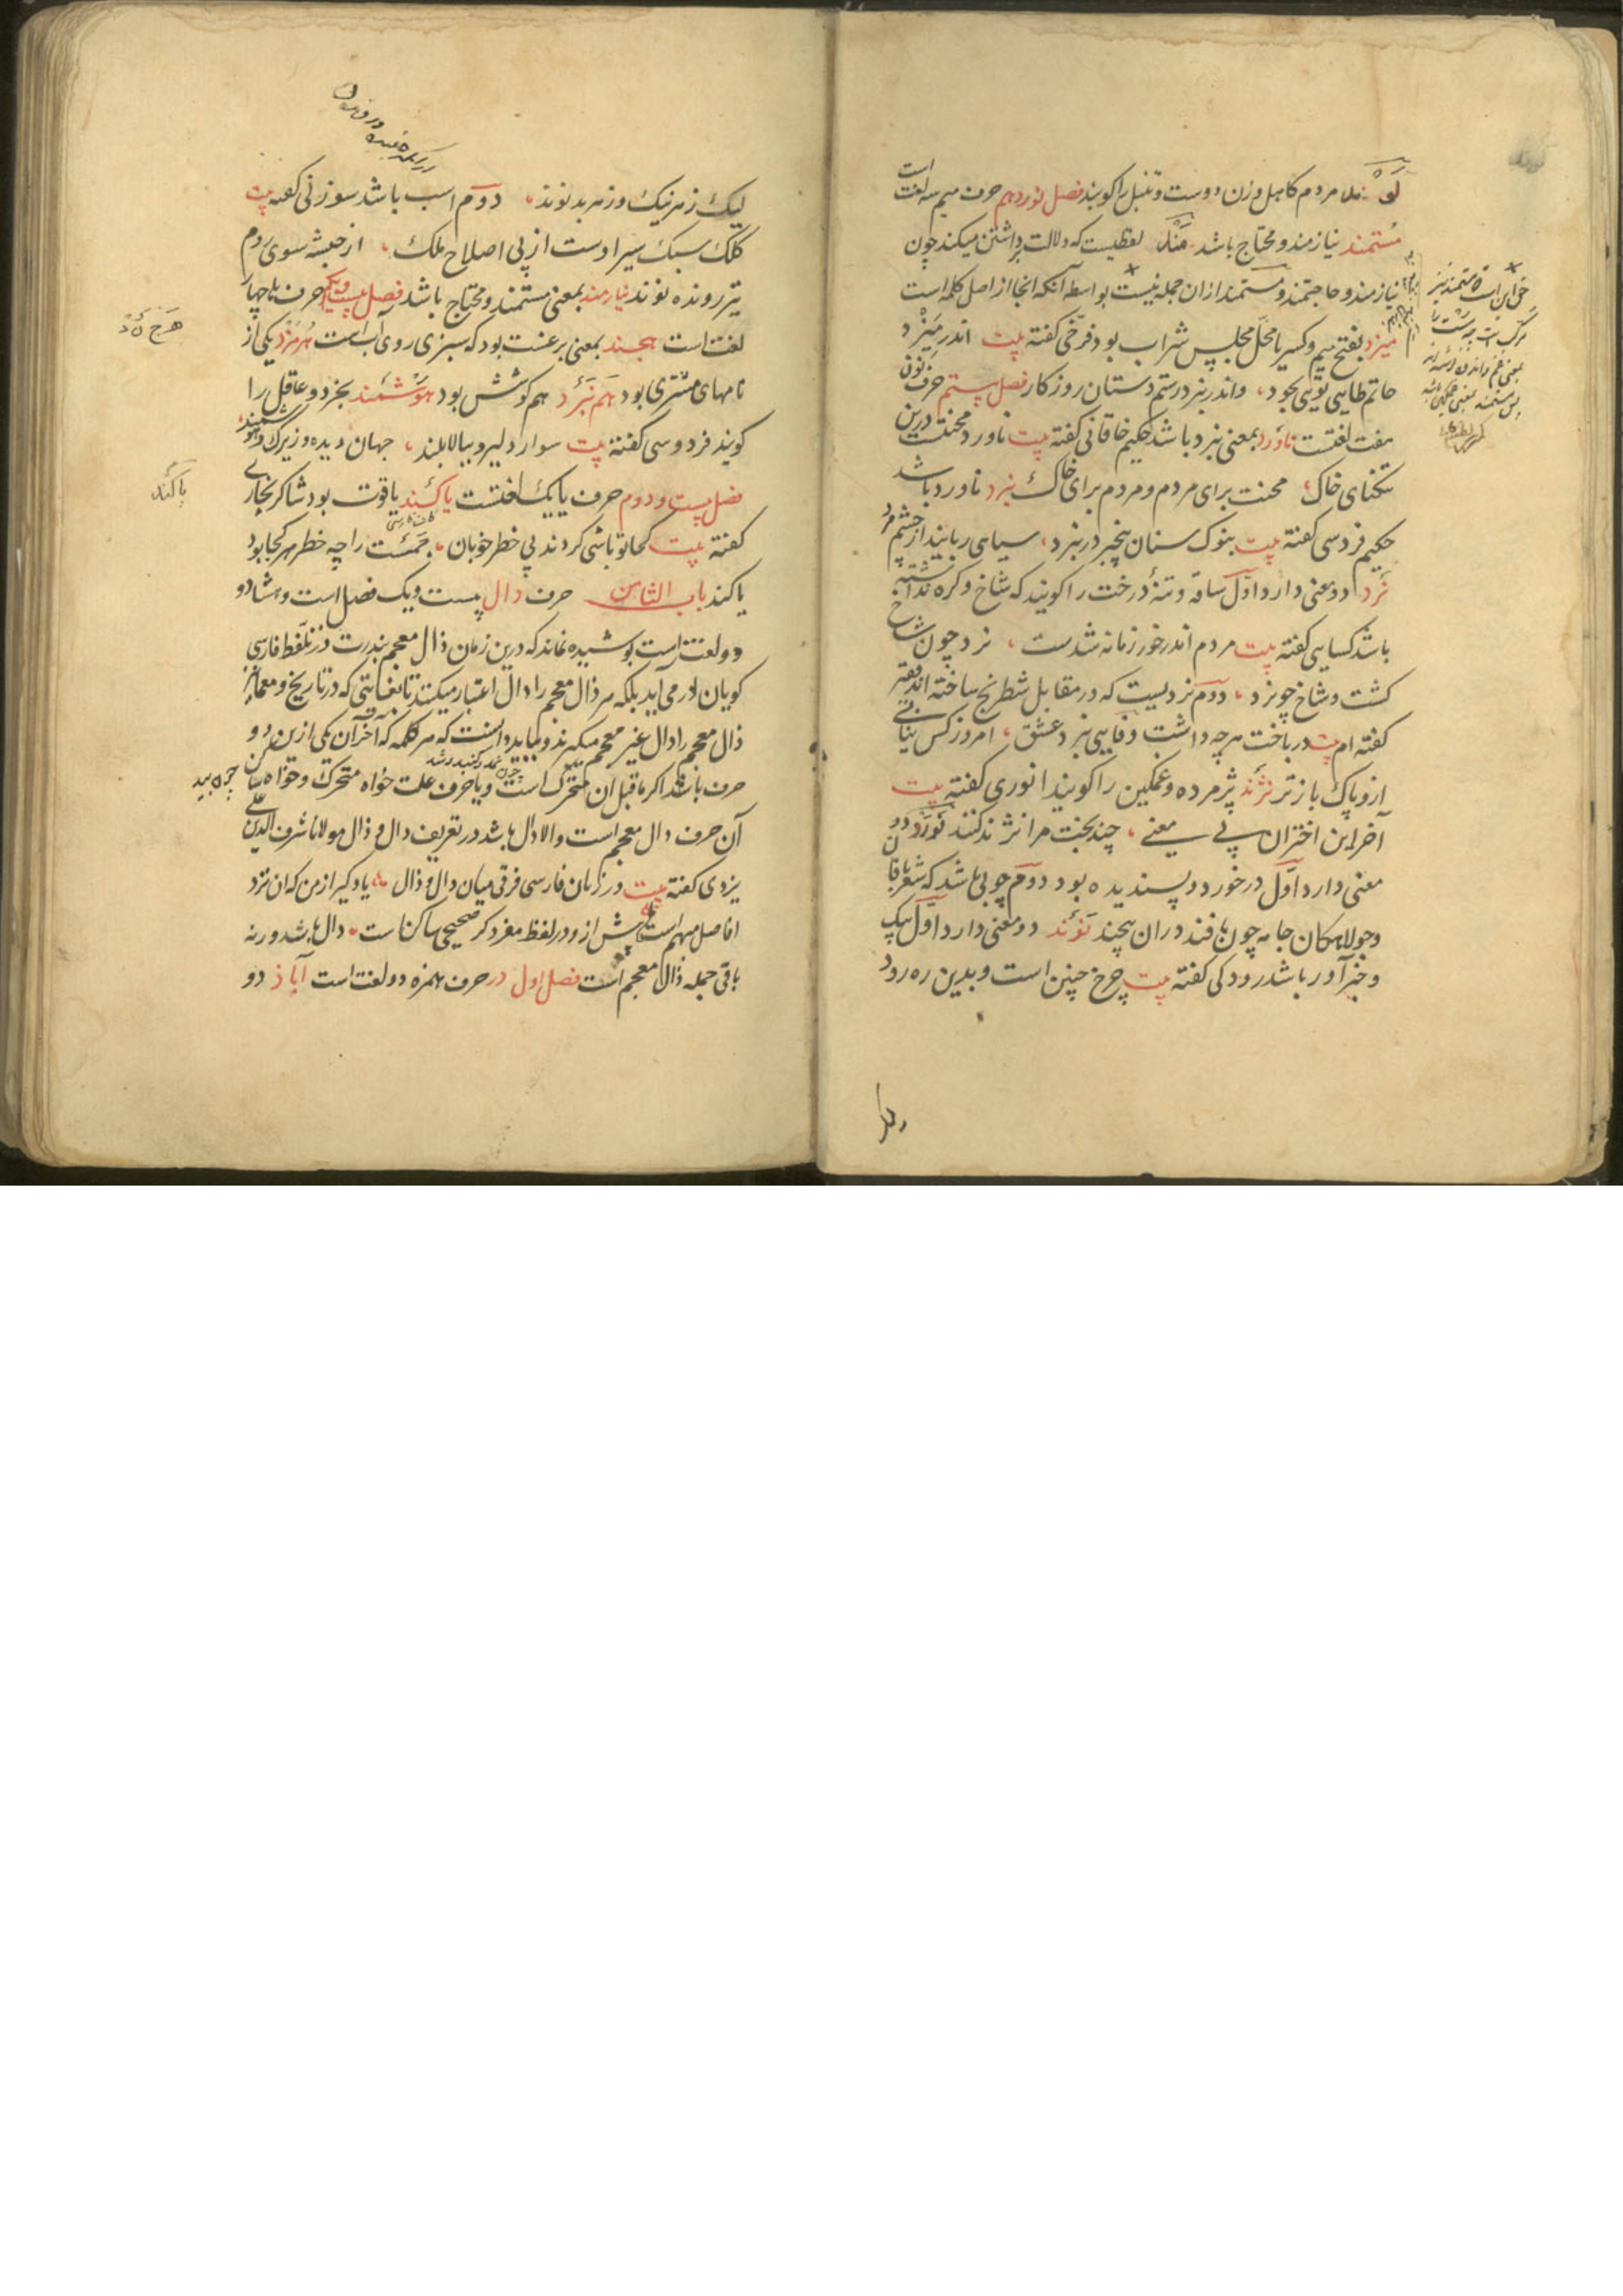 مردم کاهل و زن دوست و تنبل را کویند فصل نوزدهم حرف میم سه لغت است
مستمند نیازمند و محتاج باشد مند لفظیست که دلالت بر داشتن میکند چون
نیازمند و حاجتمند و مستمند ازان جمله نیست بواسطه آنکه انجا از اصل کلمه است
میزد بفتح میم و کسر یا محل مجلس شراب بود فرخی کفته بیت اندر میزد
حاتم طایی تویی بجود، واندر نبرد رستم دستان روزکار فصل بیستم حرف نون
هفت لغتست ناورد بمعنی نبرد باشد حکیم خاقانی کفته بیت ناورد محنتست درین
تنکنای خاک، محنت برای مردم و مردم برای خاک نبرد ناورد باشد
حکیم فردسی کفته بیت بنوک سنان پنجبر در نبرد، سیاهی ربایند از چشم مرد
نرد دو معنی دارد اول ساقه و تنهٔ درخت را کویند که شاخ و کره نداشته
باشد کسایی کفته بیت مردم اندر خور زمانه شدست، نرد چون شاخ
کشت و شاخ چو نرد، دوم نردیست که در مقابل شطرنج ساخته اند فقیر
کفته ام بیت درباخت هرچه داشت وفایی بنرد عشق، امروز کس نیابی
ازو پاک بازتر نژند پژمرده و غمکین را کویند انوری کفته بیت
آخر این اختران بی معنی، چند بخت مرا نژند کنند نورد دو
معنی دارد اول درخورد و پسندیده بود دوم چوبی باشد که شعربافان
و جولاهکان جامه چون بافند دران پیچند نوند دو معنی دارد اول پیک
و خبرآور باشد رودکی کفته بیت چرخ چنین است و بدین ره رود
لیک ز هر نیک و ز هر بد نوند، دوم اسب باشد سوزنی کفته بیت
کلک سبک سیر اوست از پی اصلاح ملک، از حبشه سوی روم
تیز رونده نوند نیازمند بمعنی مستمند و محتاج باشد فصل بیست و یکم حرف ها چهار
لغتست هجند بمعنی برغست بود که سبزی روی آبست هرمزد یکی از
نامهای مشتری بود هم نبرد هم کوشش بود هوشمند بخرد و عاقل را
کویند فردوسی کفته بیت سوار دلیر و ببالا بلند، جهان دیده و زیرک و هوشمند
فصل بیست و دوم حرف یا یک لغتست یاکند یاقوت بود شاکر بخاری
کفته بیت کجا تو باشی کردند بی خطر خوبان، جمست را چه خطر هر کجا بود
یاکند باب الثامن حرف ذال بیست و یک فصل است و هشتاد و
دو لغتست پوشیده نماند که درین زمان ذال معجم بندرت در تلفظ فارسی
کویان در می آید بلکه هر ذال معجم را دال اعتبار میکنند تا بغایتی که در تاریخ و معما نیز
ذال معجم را دال غیر معجم میکیرند و بباید دانست که هر کلمه که آخر آن یکی ازین دو
حرف باشد اکر ماقبل ان متحرک است و یا حرف علت خواه متحرک و خواه ساکن
آن حرف ذال معجم است والا دال باشد در تعریف دال و ذال مولانا شرف الدین علی
یزدی کفته بیت در زبان فارسی فرق میان دال و ذال یاد کیر از من که ان نزد
افاضل مبهم است پیش ازو در لفظ مفرد کر صحیحی ساکنست دال باشد ورنه
باقی جمله ذال معجم است فصل اول در حرف همزه دو لغت است آباذ دو
یاکند